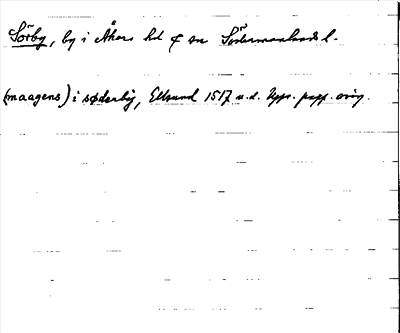 Sörby, by i Åkers hd & sn Södermanlands l.
(maagens) i søderby, Ellsund 1517 u.d. Upps. papp. orig.